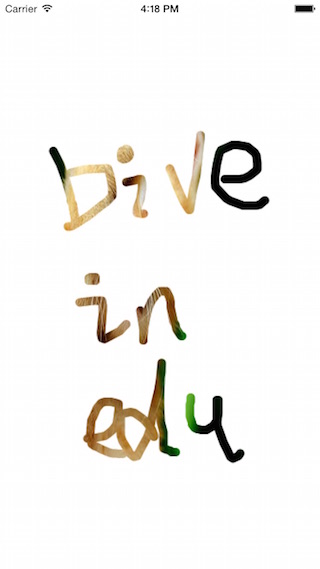 Carrier 4:18 PM
bive
in
edu